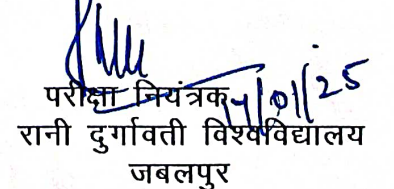 14/01/25
परीक्षा नियंत्रक
रानी दुर्गावती विश्वविद्यालय
जबलपुर